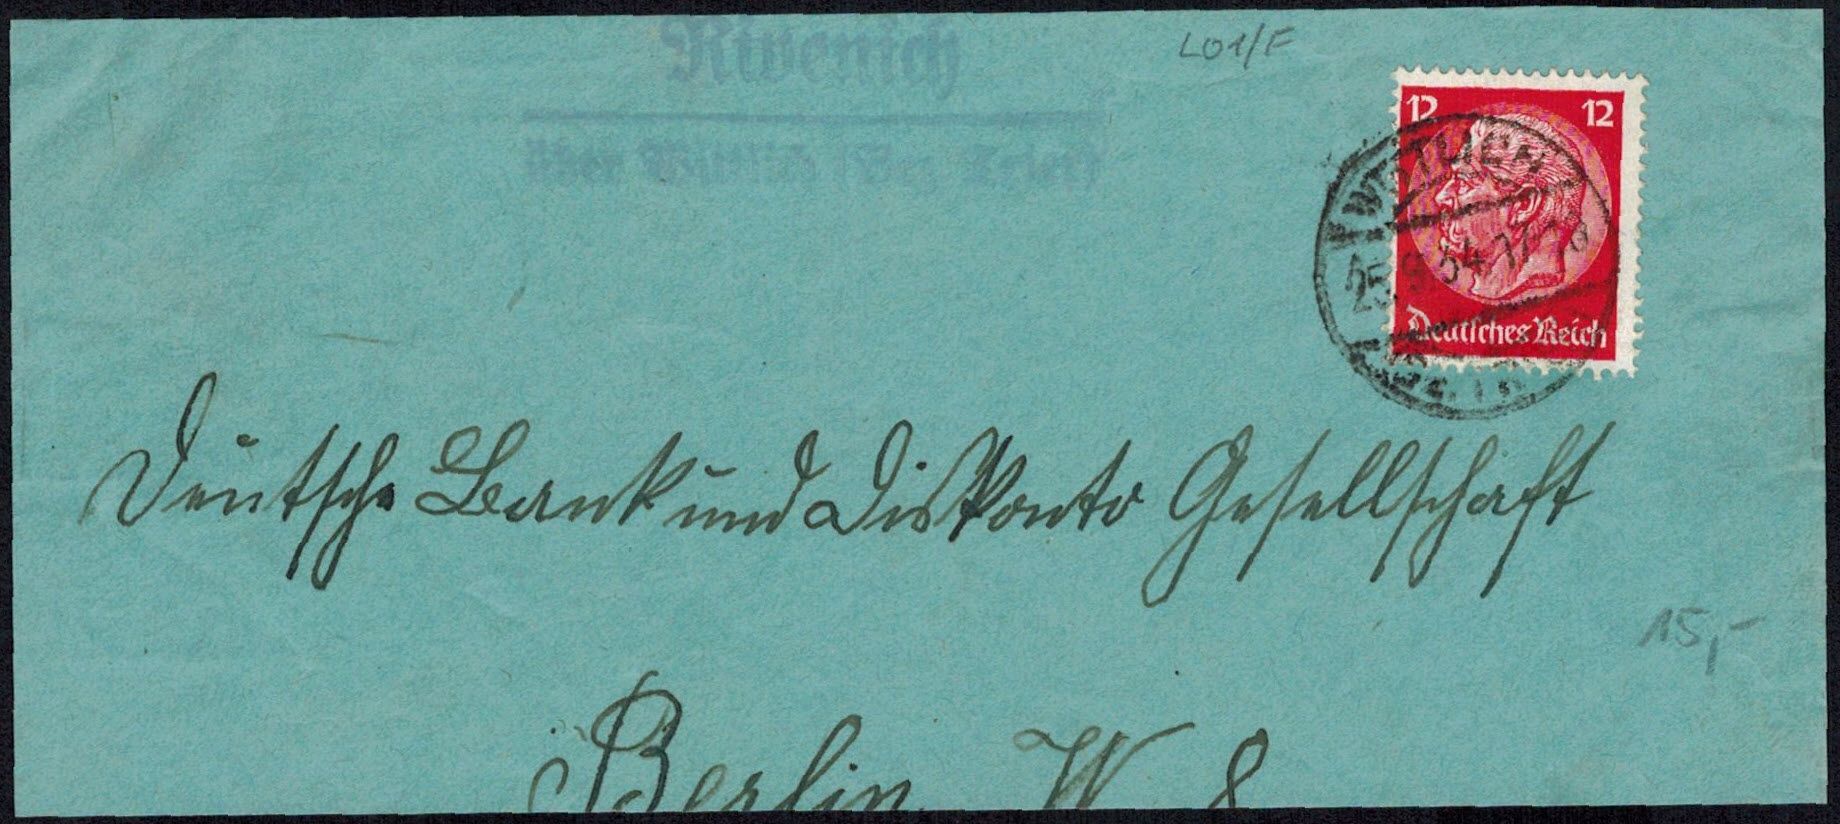 Rivenich
über Wittlich (Bez. Trier)
LO1/F
12 12
WITTLICH
25.9.34.17-18
(BZ. TR
Deutsches Reich
Deutsche Bank und Diskonto Gesellschaft
15,-
Berlin W 8